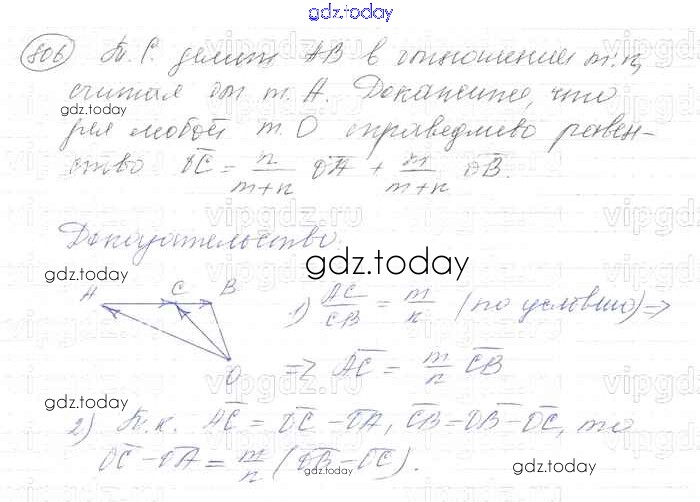 gdz.today
806) Т. С делит AB в отношении m:n,
считая от т. A. Докажите, что
gdz.today
для любой т. O справедливо равен-
ство OC = n/(m+n) OA + m/(m+n) OB.
Доказательство.
gdz.today
gdz.today
A C B
1) AC/CB = m/n (по условию) =>
O
=> AC = m/n CB
gdz.today
2) Т.к. AC = OC - OA, CB = OB - OC, то
OC - OA = m/n (OB - OC).
gdz.today